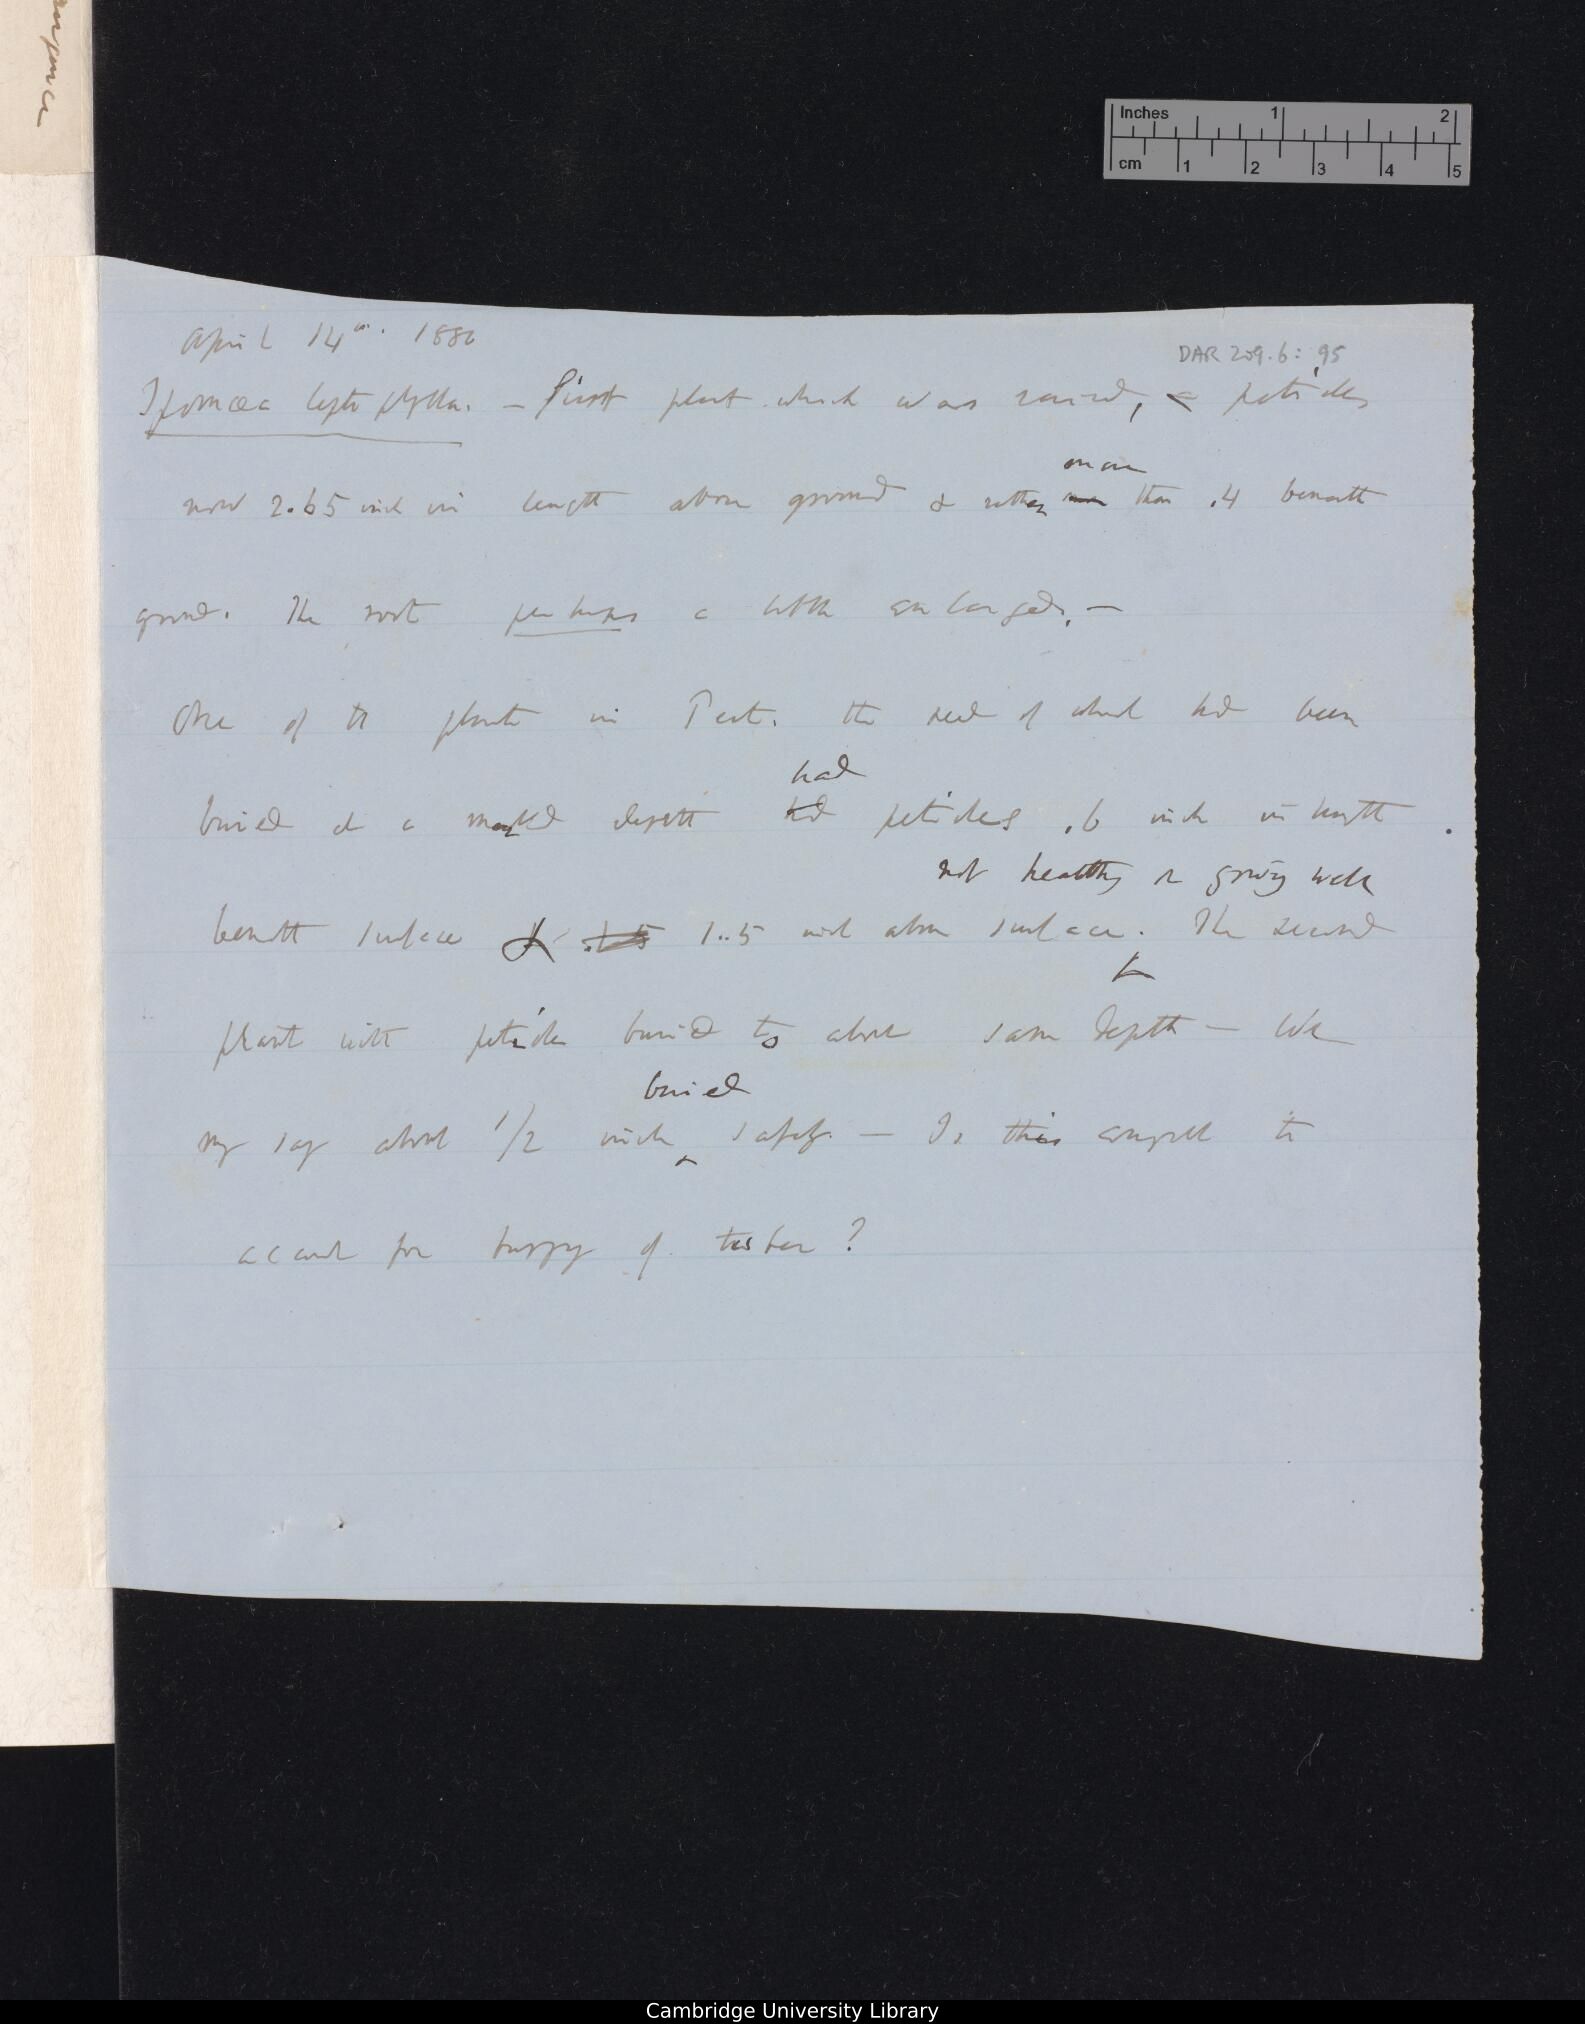 Inches 1 2
cm 1 2 3 4 5
April 14th. 1880
DAR 209.6: 95
Ipomœa leptophylla. — First plant which was raised, petioles
now 2.65 inch in length above ground & rather more than .4 beneath
ground. The root perhaps a little enlarged. —
One of the plants in Peat. the seed of which had been
buried at a depth had petioles .6 inch in length
beneath surface & 1.5 inch above surface not healthy or growing well. The second
plant with petioles buried to about same depth — We
may say about 1/2 inch buried safely. — Is this enough to
account for of tuber?
Cambridge University Library